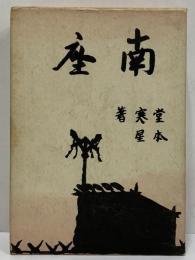 南座
堂本
寒星
著